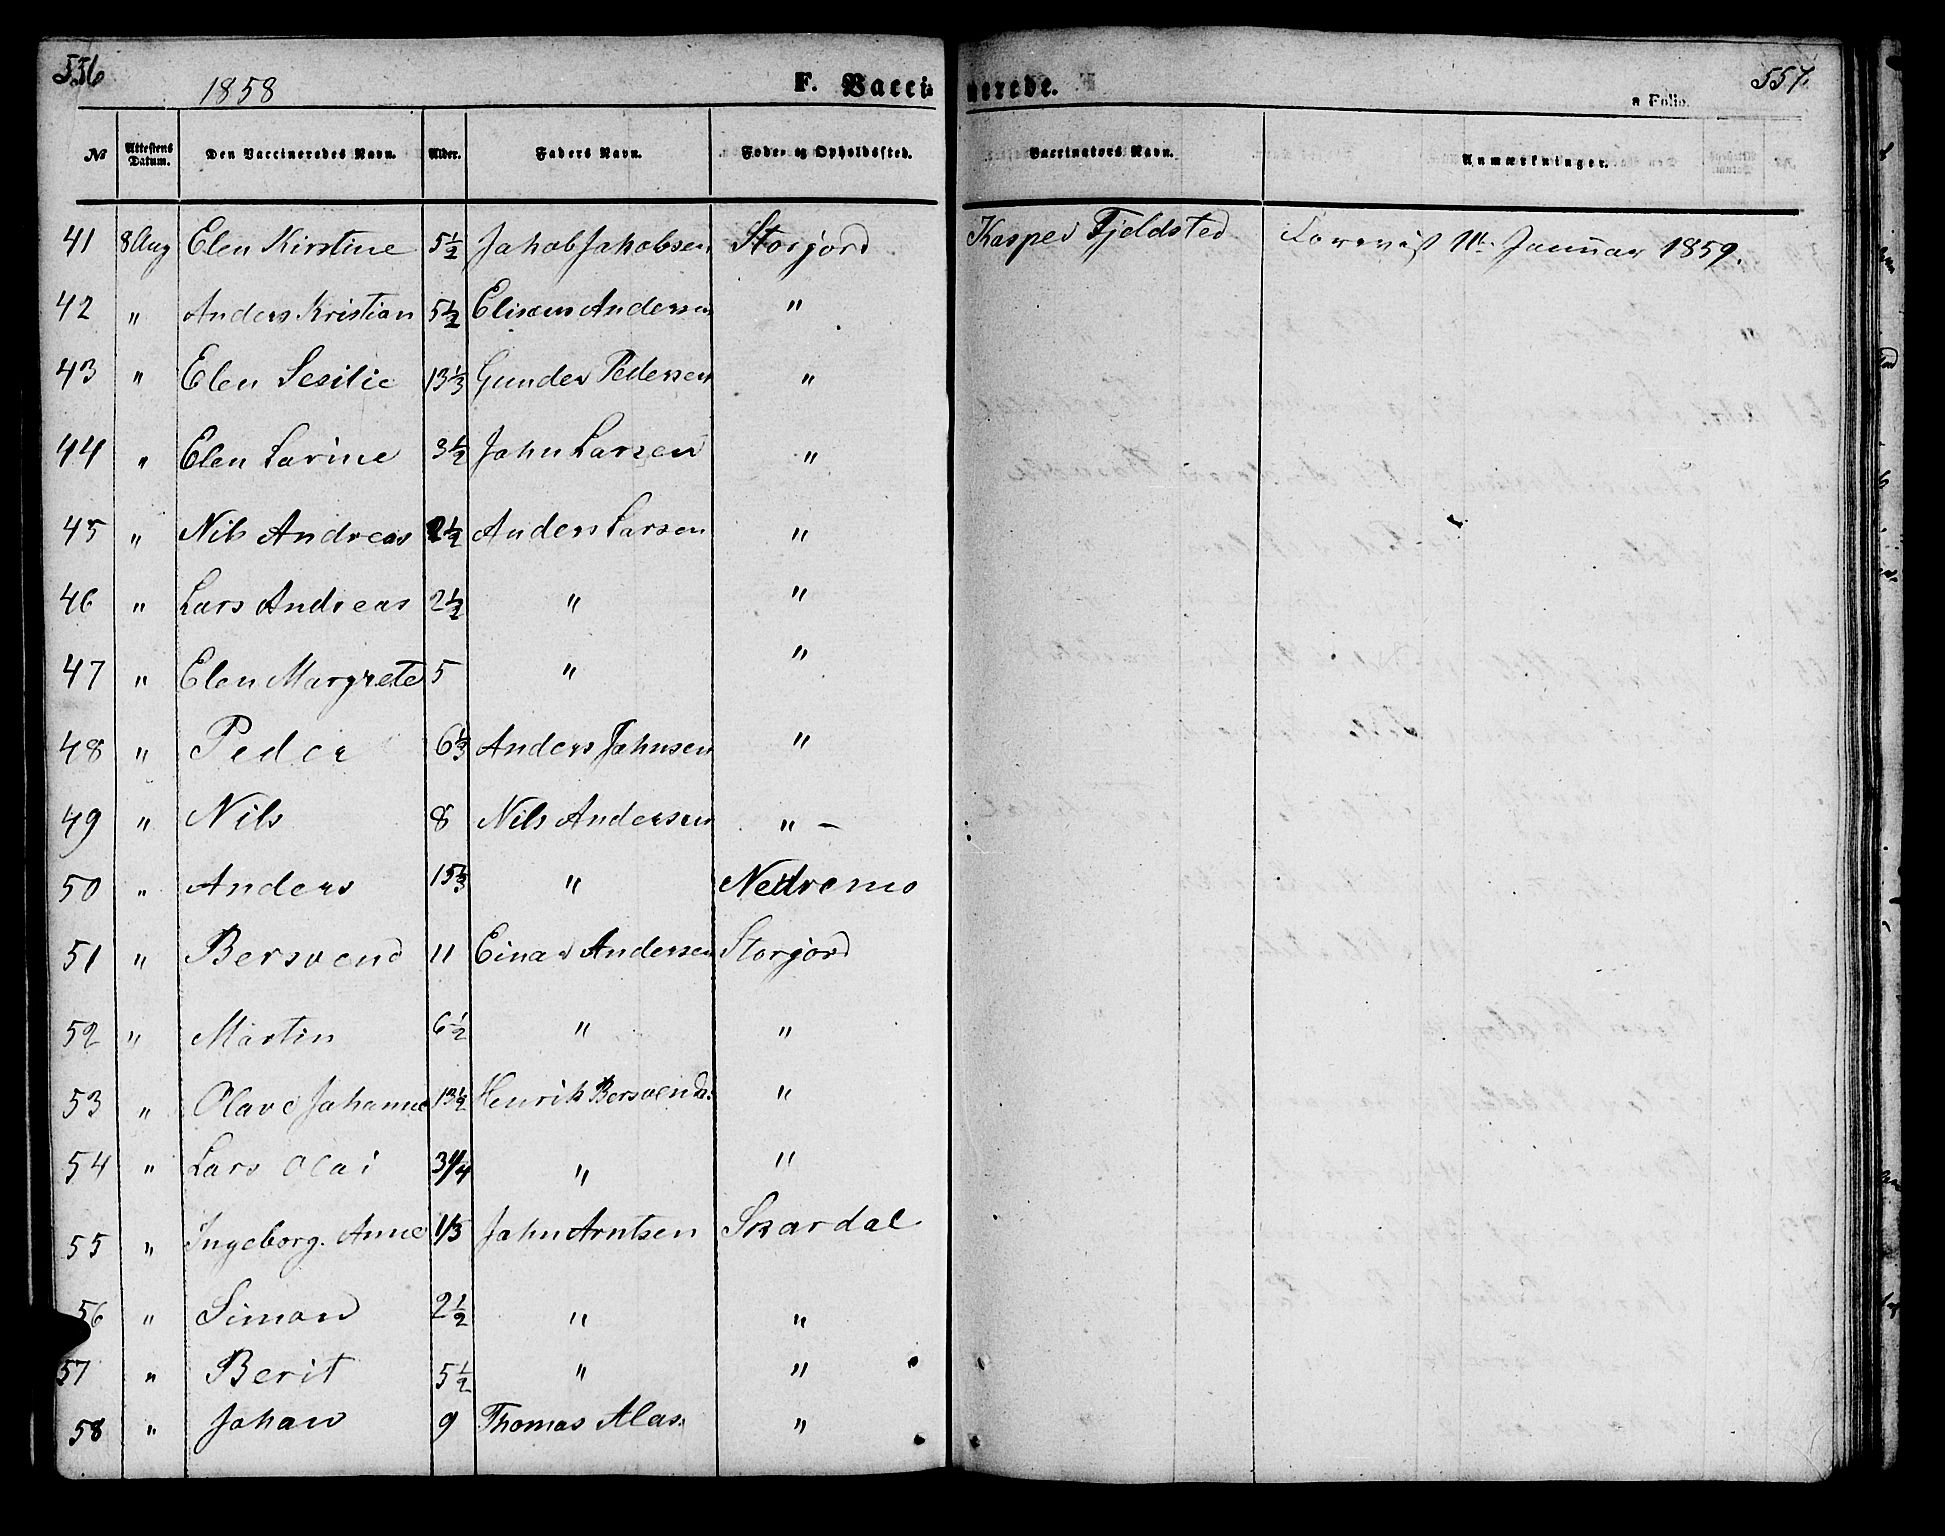 556
1858
F. Vacci-
nerede.
a Folio.
557.
No Attestens Datum. Den Vaccineredes Navn. Alder. Faders Navn. Føde- og Opholdssted. Vaccinators Navn. Anmærkninger.
41 8 Aug Elen Kirstine 5½ Jakob Jakobsen Storjord Kasper Fjeldsted 11te Januar 1859.
42 " Anders Kristian 5½ Eliseus Andersen "
43 " Elen Sesilie 13⅓ Gunder Pedersen "
44 " Elen Larine 3½ John Larsen "
45 " Nils Andreas 2½ Anders Larsen "
46 " Lars Andreas 2½ " "
47 " Elen Margrete 5 " "
48 " Peder 6⅓ Anders Johnsen "
49 " Nils 8 Nils Andersen " –
50 " Anders 15⅓ " Nedremo
51 " Bersvend 11 Einar Andersen Storjord
52 " Martin 6½ " "
53 " Olave Johanne 13½ Henrik Bersvends. "
54 " Lars Olai 3/4 " "
55 " Ingeborg. Anne 1/3 John Arntsen Skardal
56 " Simon 2½ " "
57 " Berit 5½ " "
58 " Johan 9 Thomas Alas. "